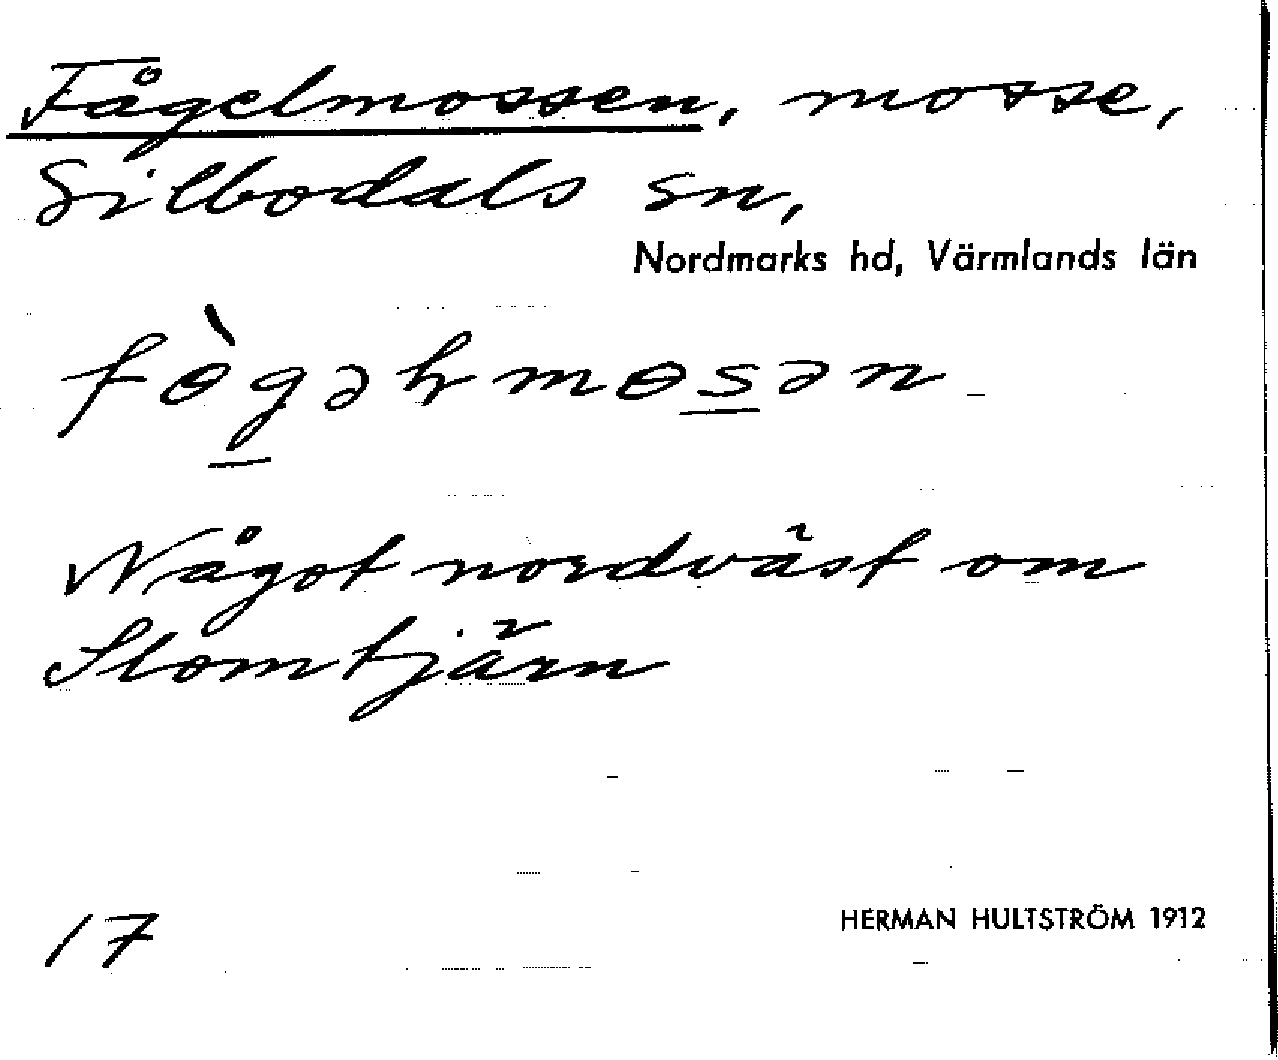 Fågelmossen, mosse,
Silbodals sn,
Nordmarks hd, Värmlands län
Något nordväst om
Slomtjärn
17
HERMAN HULTSTRÖM 1912